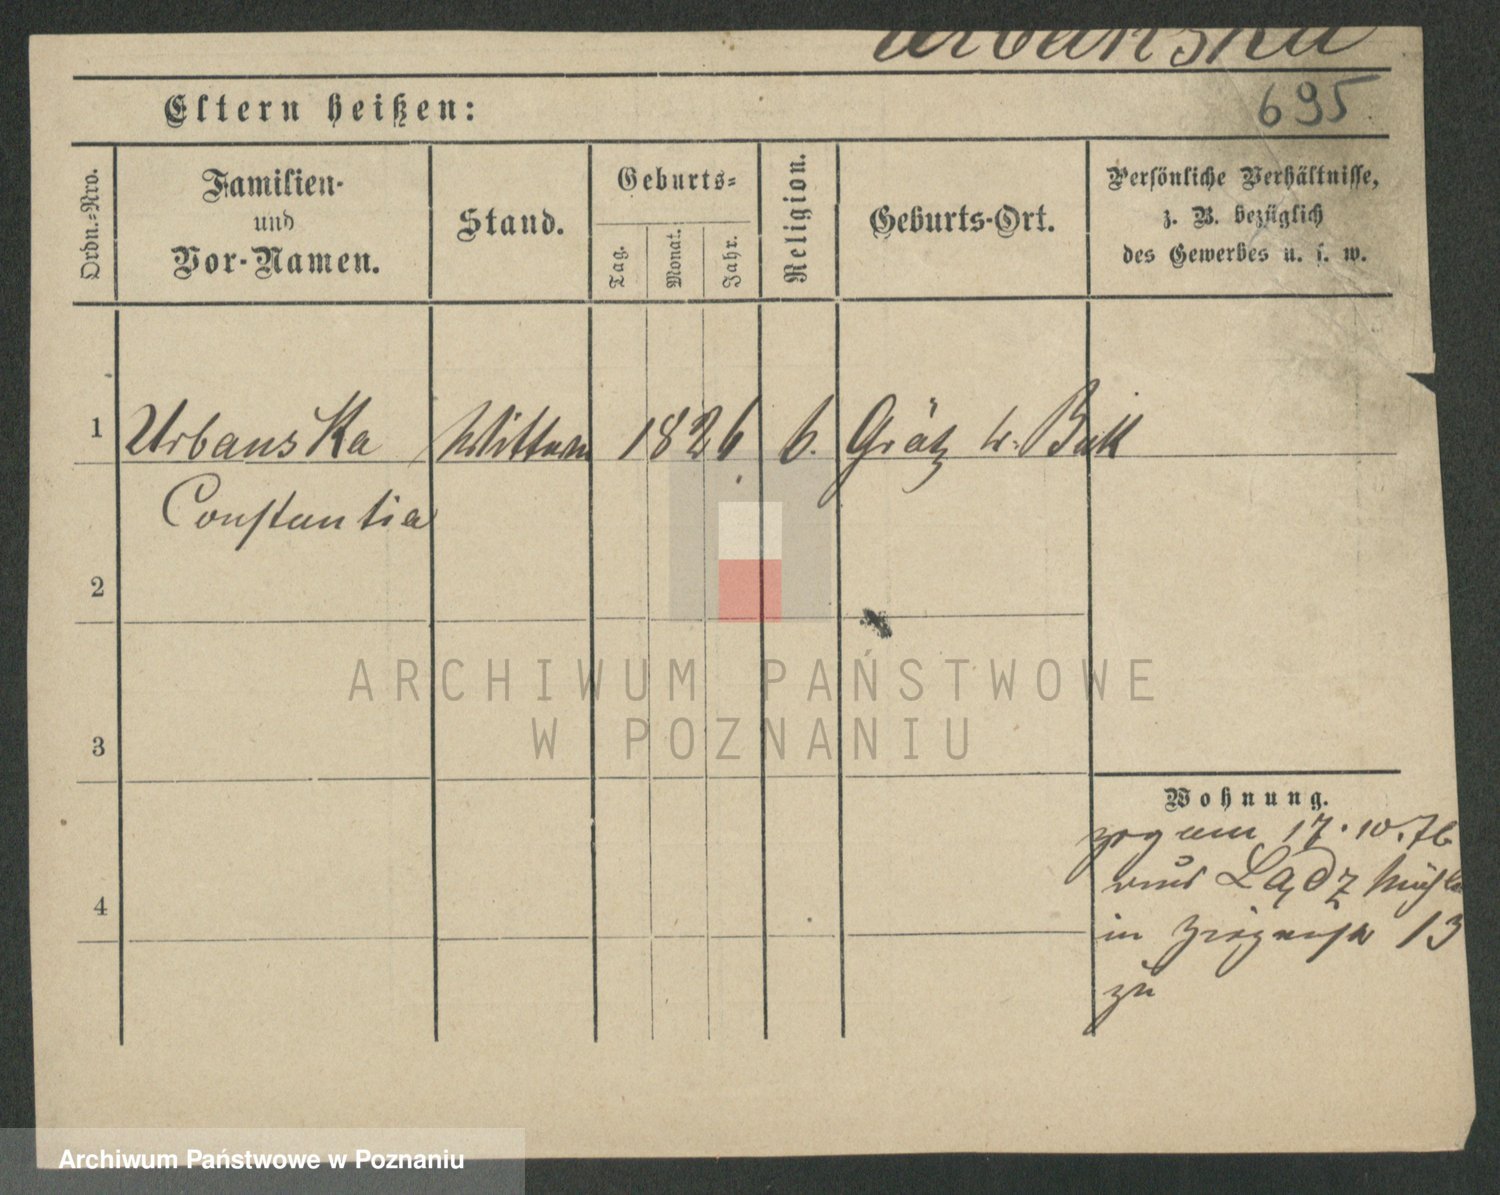 Urbanska
695
Eltern heißen:
Ordn.-Nro.
Familien-
und
Vor-Namen.
Stand.
Geburts-
Tag.
Monat.
Jahr.
Religion.
Geburts-Ort.
Persönliche Verhältnisse,
z. B. bezüglich
des Gewerbes u. s. w.
1 Urbanska Wittwe 1826 Grätz Kr. Buk
Constantia
2
ARCHIWUM PAŃSTWOWE
W POZNANIU
3
Wohnung.
zog am 17.10.76
aus
4
in 13
zu
Archiwum Państwowe w Poznaniu